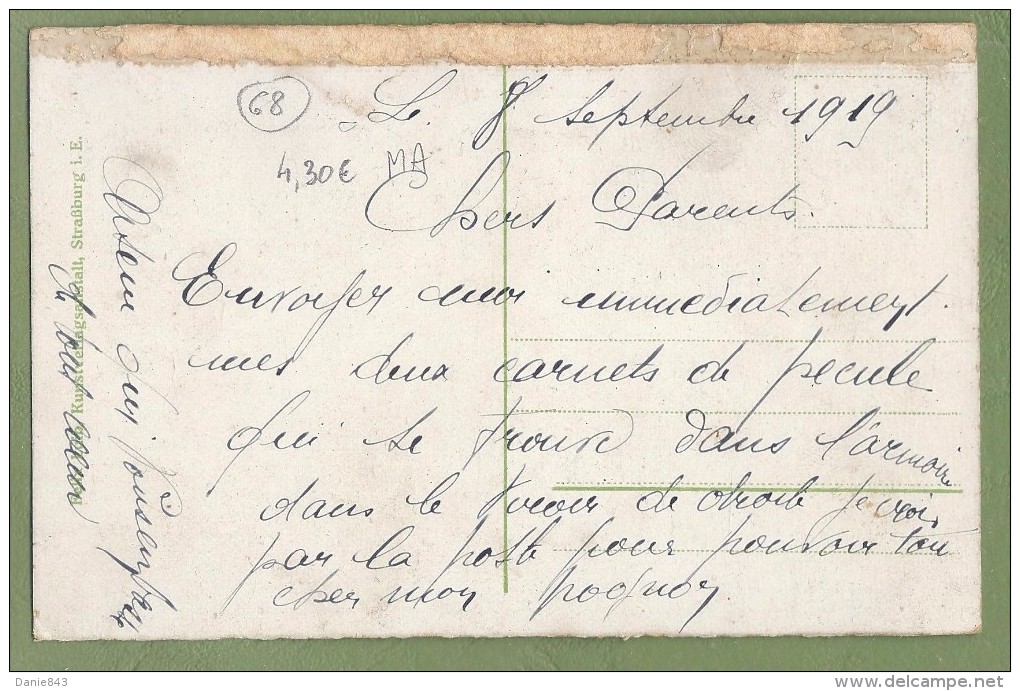 68
Le 8 Septembre 1919
4,30€ MA
Chers Parents.
Envoyer moi immediatement
mes deux carnets de pecule
qui se trouve dans l'armoire
dans le tiroir de droite je crois
par la poste pour pouvoir tou
cher mon pognon
Votre fils qui
à tous coeur
Kunstverlagsanstalt, Straßburg i. E.
Danie843
www.delcampe.net